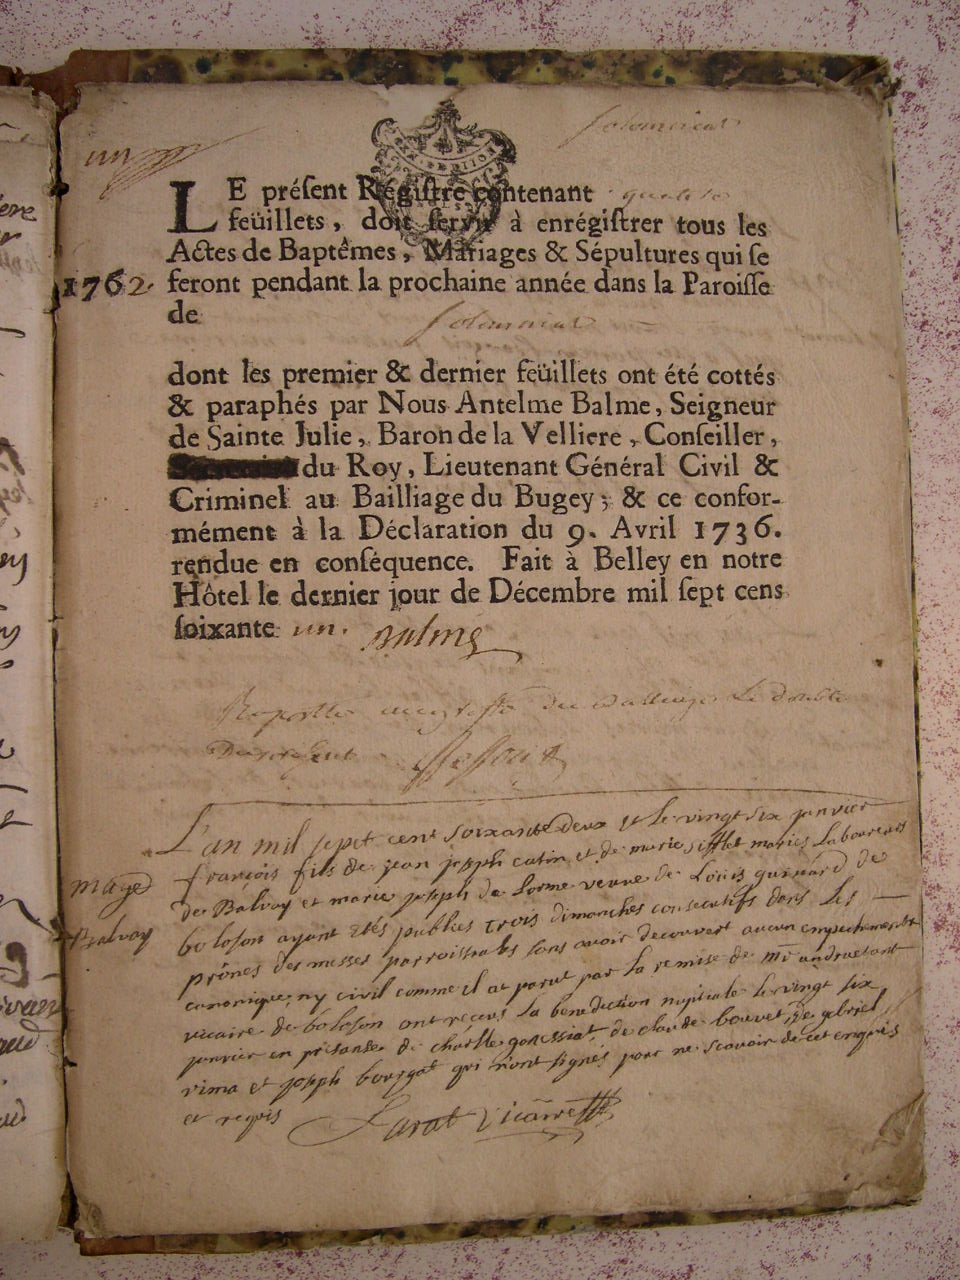 un
Solomiat
LE préſent Régiſtre contenant
feüillets, doit ſervir à enrégiſtrer tous les
Actes de Baptêmes, Mariages & Sépultures qui ſe
1762. feront pendant la prochaine année dans la Paroiſſe
de Solomiat
dont les premier & dernier feüillets ont été cottés
& paraphés par Nous Antelme Balme, Seigneur
de Sainte Julie, Baron de la Velliere, Conſeiller,
du Roy, Lieutenant Général Civil &
Criminel au Bailliage du Bugey; & ce confor-
mément à la Déclaration du 9. Avril 1736.
rendue en conſéquence. Fait à Belley en notre
Hôtel le dernier jour de Décembre mil ſept cens
ſoixante un. Balme
du Balliage Le double
L'an mil sept cent soixante Deux et le vingt six janvier
françois fils de jean joseph catin et de marie sifflet mariés Laboureurs
mage
de Balvay et marie joseph de Lorme veuve de Louis guinard de
Balvay
boloson ayant etés publiés trois dimanches consecutifs dans les
prônes des messes parroissiales sans avoir decouvert aucun empechement
canonique, ny civil comme il at parut par la remise de mr andruetant
vicaire de boloson ont reçeus la benediction nuptiale le vingt six
janvier en présance de charlle gonessiat, de claude bouvet, de gebriel
vima et joseph bourgat qui n'ont signés pour ne scavoir de cet enquis
et requis Larat Vicaire